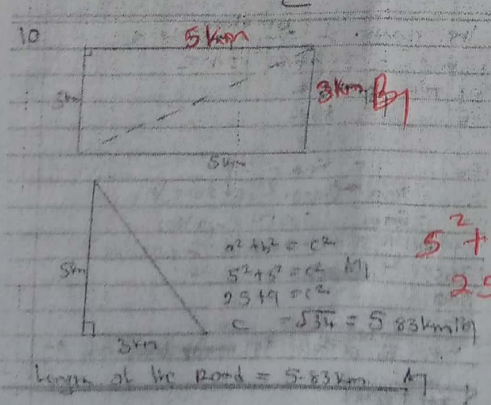 10
5 Km
3km
3Km B1
5km
5km
a² + b² = c²
5² +
5² + b² = c² M1
25 + 9 = c²
25
c = √34 = 5.83km
3km
Length of the Road = 5.83km A1